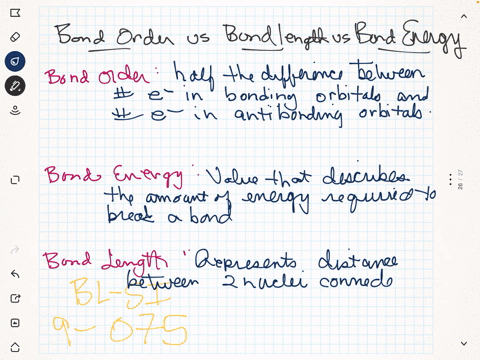 Bond Order vs Bond length vs Bond Energy
Bond Order: half the difference between
# e- in bonding orbitals and
# e- in antibonding orbitals.
Bond Energy: Value that describes
the amount of energy required to
break a bond
Bond Length: Represents distance
between 2 nuclei connede
BL-SI
9-075
26 / 27